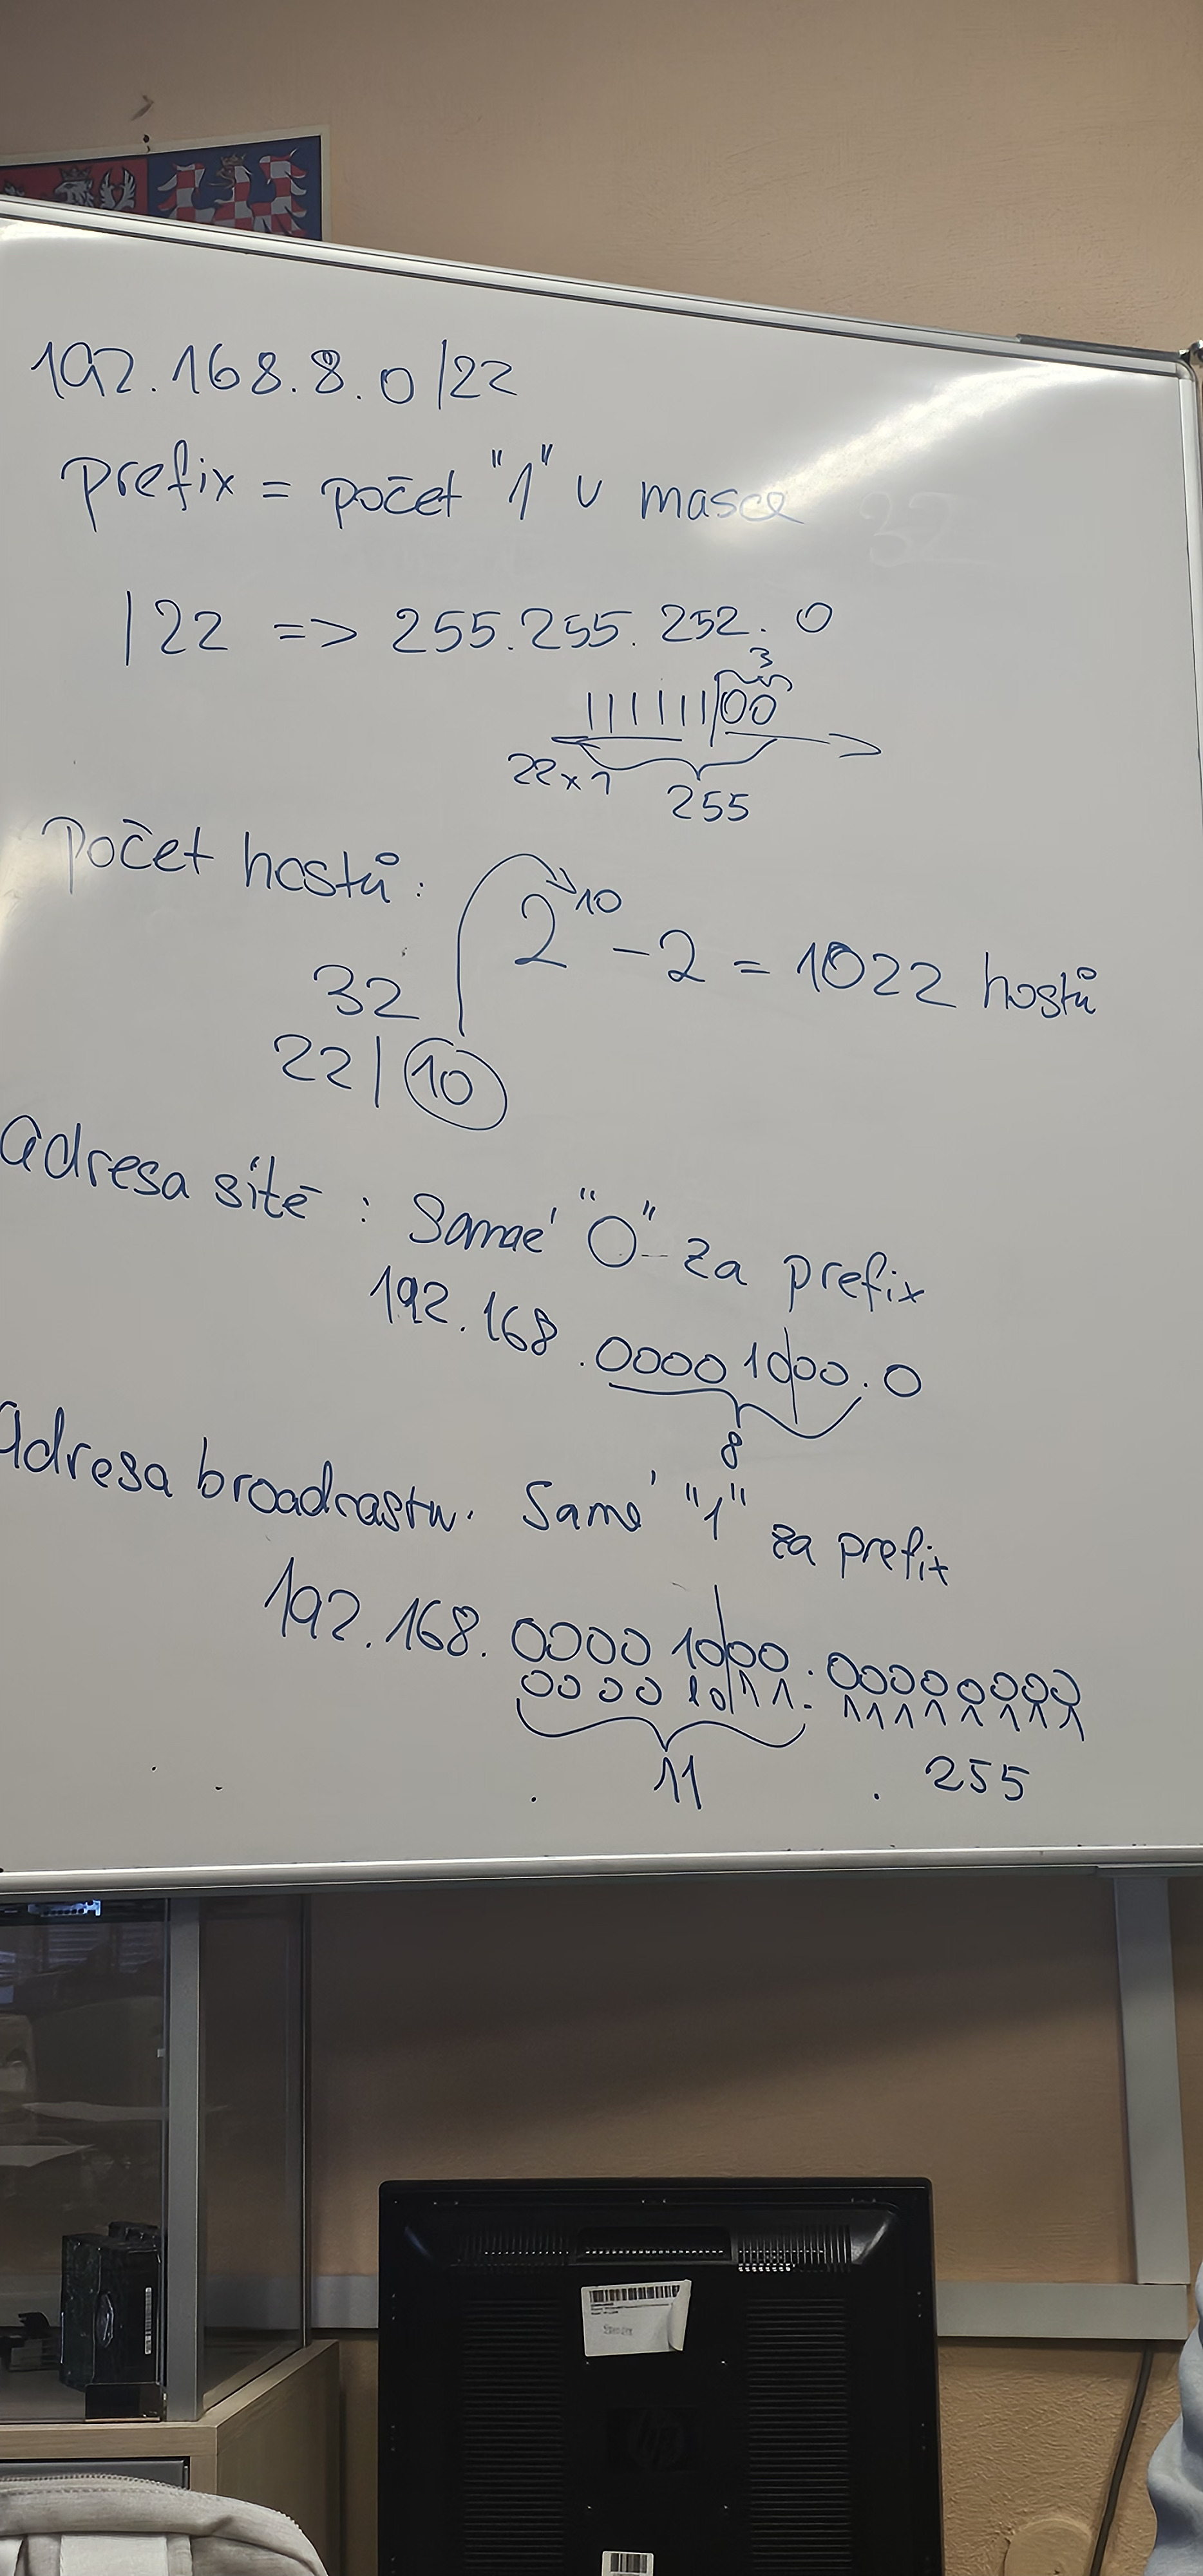 192.168.8.0/22
prefix = počet "1" v masce
/22 => 255.255.252.0
3
111111|00
22x1
255
Počet hostů:
2^10 - 2 = 1022 hostů
32
22 | 10
Adresa sítě: Samé "0" za prefix
192.168.0000 10|00.0
8
Adresa broadcastu. Samé "1" za prefix
192.168.0000 10|00.00000000
0000 10|11.11111111
11 . 255
hp